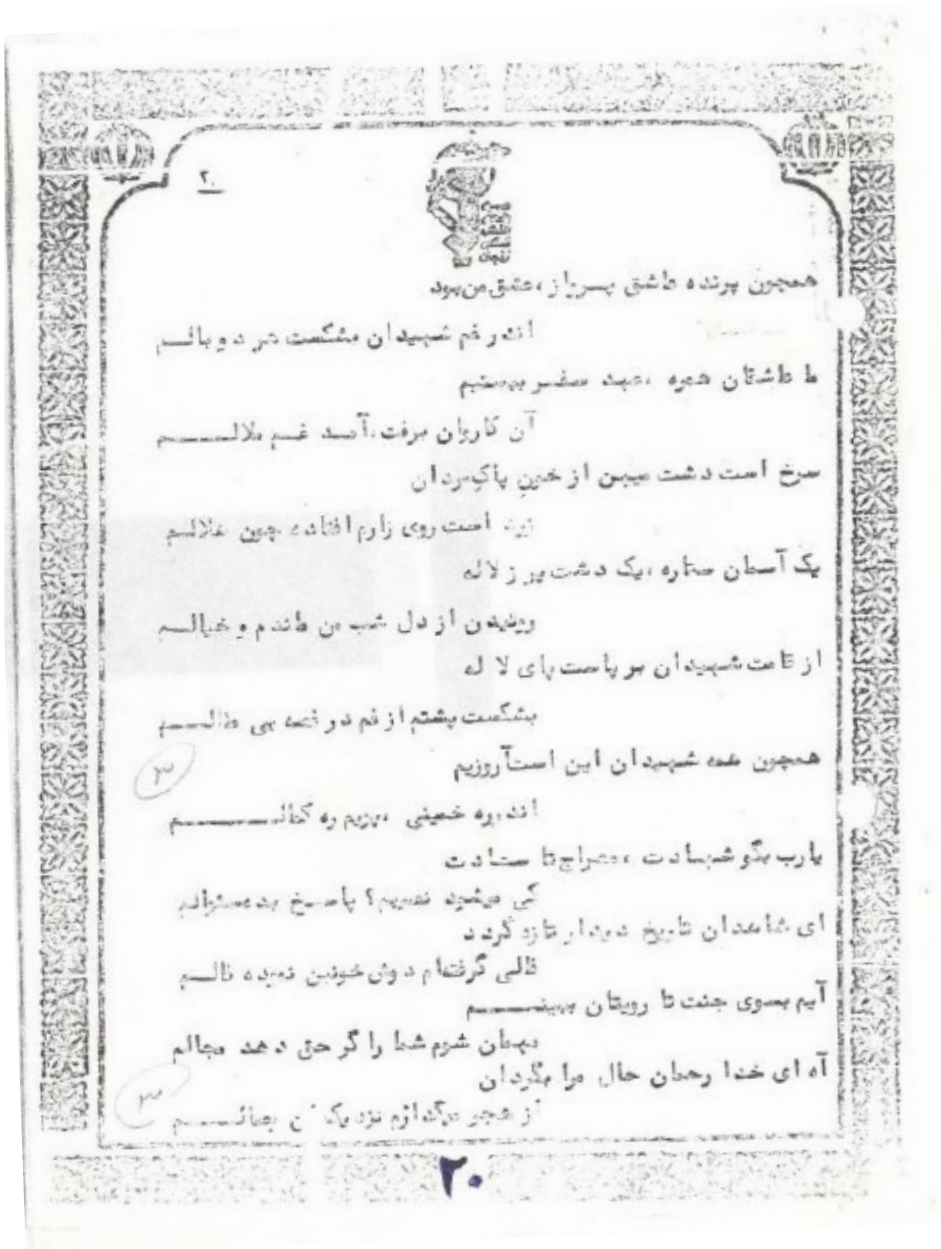 ۲۰
همچون پرنده عاشق پرواز، عشق من بود
اندر غم شهیدان بشکست هر دو بالم
ما عاشقان همره، عهد سفر ببستیم
آن کاروان برفت، آمد غم ملالم
سرخ است دشت میهن از خون پاک‌مردان
زرد است روی زارم افتاده چون هلالم
یک آسمان ستاره، یک دشت پر ز لاله
از دل شب من ماندم و خیالم
از قامت شهیدان بر پاست پای لاله
بشکست پشتم از غم در غصه بی
همچون همه شهیدان این است آرزویم
۳
اندر ره خمینی، ره کمالم
یارب بگو شهادت، معراج تا سعادت
کی میشود نصیبم؟ پاسخ بده
ای شاهدان تاریخ دیدار تازه گردد
گرفته‌ام دوش خونین
آیم بسوی جنت تا رویتان ببینم
مهمان شوم شما را گر حق دهد مجالم
آه ای خدا رحمان حال مرا بگردان
۳
از هجر نزدیک
۲۰